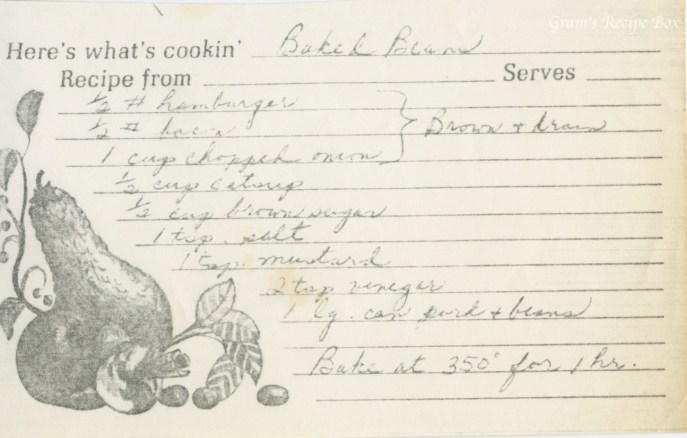 Gram's Recipe Box
Here's what's cookin' Baked Beans
Recipe from Serves
1/2 # hamburger
1/2 # bacon } Brown + drain
1 cup chopped onion
1/2 cup catsup
1/2 cup brown sugar
1 tsp. salt
1 tsp. mustard
2 tsp vinegar
1 lg. can pork + beans
Bake at 350° for 1 hr.